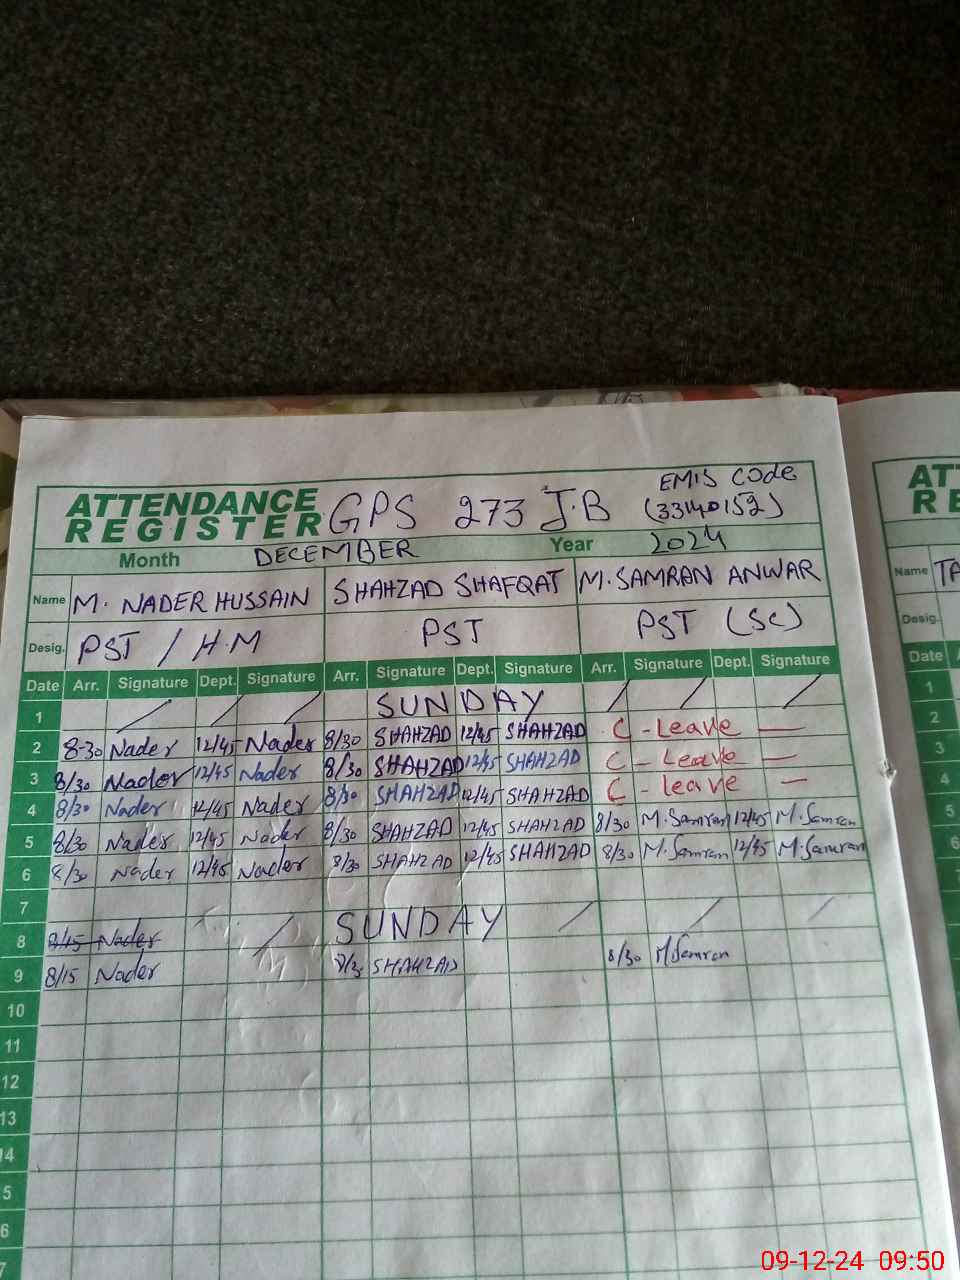 ATTENDANCE REGISTER GPS 273 J.B EMIS Code (33140152)
Month DECEMBER Year 2024
Name M. NADER HUSSAIN SHAHZAD SHAFQAT M. SAMRAN ANWAR
Desig. PST / H.M PST PST (SC)
Date Arr. Signature Dept. Signature Arr. Signature Dept. Signature Arr. Signature Dept. Signature
1 SUNDAY
2 8-30 Nader 12/45 Nader 8/30 SHAHZAD 12/45 SHAHZAD C - Leave —
3 8/30 Nader 12/45 Nader 8/30 SHAHZAD 12/45 SHAHZAD C - Leave —
4 8/30 Nader 12/45 Nader 8/30 SHAHZAD 12/45 SHAHZAD C - leave —
5 8/30 Nader 12/45 Nader 8/30 SHAHZAD 12/45 SHAHZAD 8/30 M.Samran 12/45 M.Samran
6 8/30 Nader 12/45 Nader 8/30 SHAHZAD 12/45 SHAHZAD 8/30 M.Samran 12/45 M.Samran
7
8 8/15 Nader SUNDAY
9 8/15 Nader SHAHZAD 8/30 M Samran
10
11
12
13
14
5
6
7
AT
RE
Name TA
Desig.
Date
1
2
3
4
5
6
09-12-24 09:50